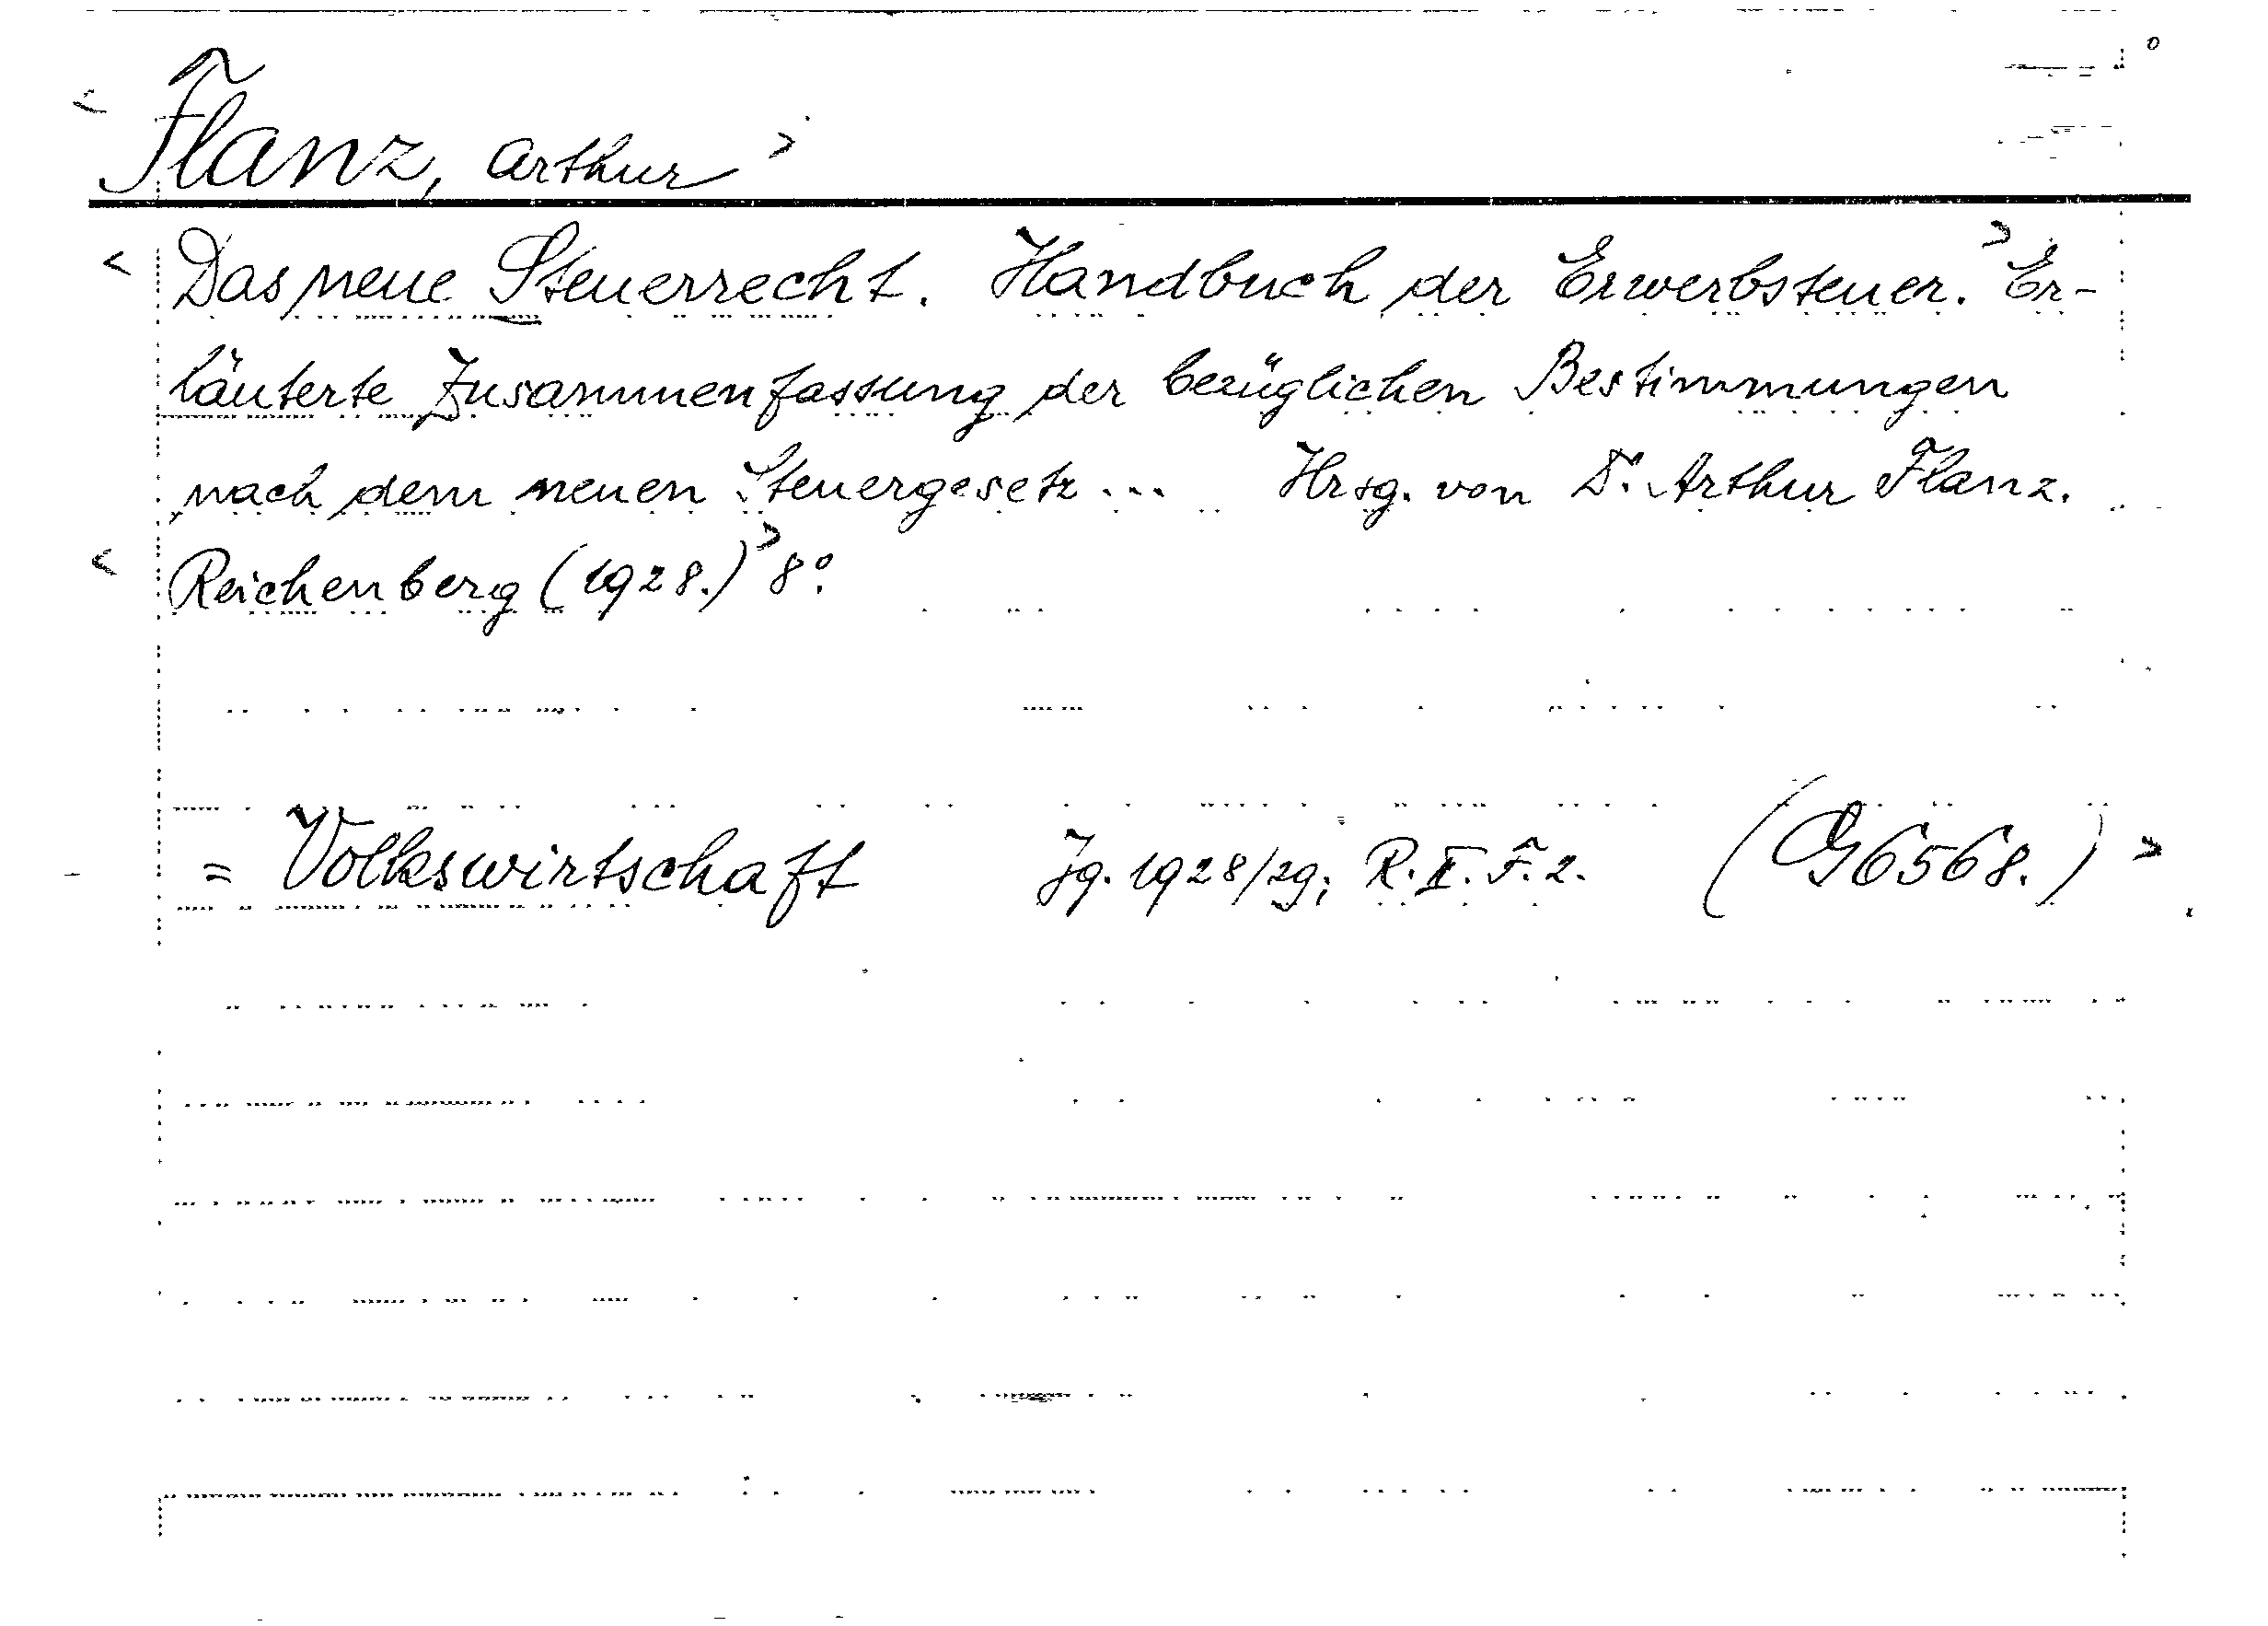 < Flanz, Arthur >
< Das neue Steuerrecht. Handbuch der Erwerbsteuer. > Er-
läuterte Zusammenfassung der bezüglichen Bestimmungen
nach dem neuen Steuergesetz ... Hrsg. von D. Arthur Flanz.
< Reichenberg (1928.) > 8°.
= Volkswirtschaft Jg. 1928/29; R. II. F. 2. (G 6568.) >